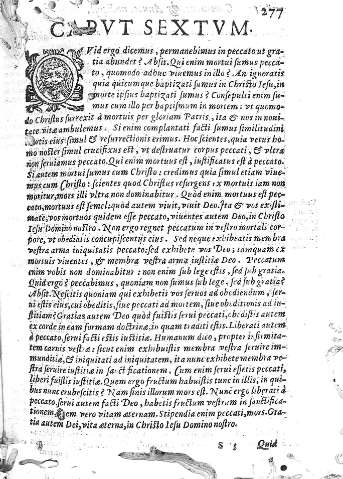 277
CAPVT SEXTUM.
QVid ergo dicemus, permanebimus in peccato ut gra-
tia abundet? Absit. Qui enim mortui sumus pecca-
to, quomodo adhuc viuemus in illo? An ignoratis
quia quicumque baptizati sumus in Christo Iesu, in
morte ipsius baptizati sumus? Consepulti enim su-
mus cum illo per baptismum in mortem: vt quomo-
do Christus surrexit à mortuis per gloriam Patris, ita & nos in noui-
tate vitæ ambulemus. Si enim complantati facti sumus similitudini
mortis eius simul & resurrectionis erimus. Hoc scientes, quia vetus ho-
mo noster simul crucifixus est, vt destruatur corpus peccati, & vltra
non seruiamus peccato. Qui enim mortuus est, iustificatus est à peccato.
Si autem mortui sumus cum Christo: credimus quia simul etiam viue-
mus cum Christo: scientes quod Christus resurgens ex mortuis iam non
moritur, mors illi vltra non dominabitur. Quòd enim mortuus est pec-
cato, mortuus est semel: quòd autem viuit, viuit Deo. Ita & vos existi-
mate, vos mortuos quidem esse peccato, viuentes autem Deo, in Christo
Iesu Domino nostro. Non ergo regnet peccatum in vestro mortali cor-
pore, vt obediatis concupiscentijs eius. Sed neque exhibeatis membra
vestra arma iniquitatis peccato: sed exhibete vos Deo; tamquam ex
mortuis viuentes, & membra vestra arma iustitiæ Deo. Peccatum
enim vobis non dominabitur: non enim sub lege estis, sed sub gratia.
Quid ergo? peccabimus, quoniam non sumus sub lege, sed sub gratia?
Absit. Nescitis quoniam cui exhibetis vos seruos ad obediendum, ser-
ui estis eius, cui obeditis, siue peccati ad mortem, siue obeditionis ad iu-
stitiam? Gratias autem Deo quòd fuistis serui peccati, obedistis autem
ex corde in eam formam doctrinæ, in quam traditi estis. Liberati autem
à peccato, serui facti estis iustitiæ. Humanum dico, propter infirmita-
tem carnis vestræ: sicut enim exhibuistis membra vestra seruire im-
munditiæ, & iniquitati ad iniquitatem, ita nunc exhibete membra ve-
stra seruire iustitiæ in sanctificationem. Cum enim serui essetis peccati,
liberi fuistis iustitiæ. Quem ergo fructum habuistis tunc in illis, in qui-
bus nunc erubescitis? Nam finis illorum mors est. Nunc ergo liberati à
peccato, serui autem facti Deo, habetis fructum vestrum in sanctifica-
tionem, finem vero vitam æternam. Stipendia enim peccati, mors. Gra-
tia autem Dei, vita æterna, in Christo Iesu Domino nostro.
Quid